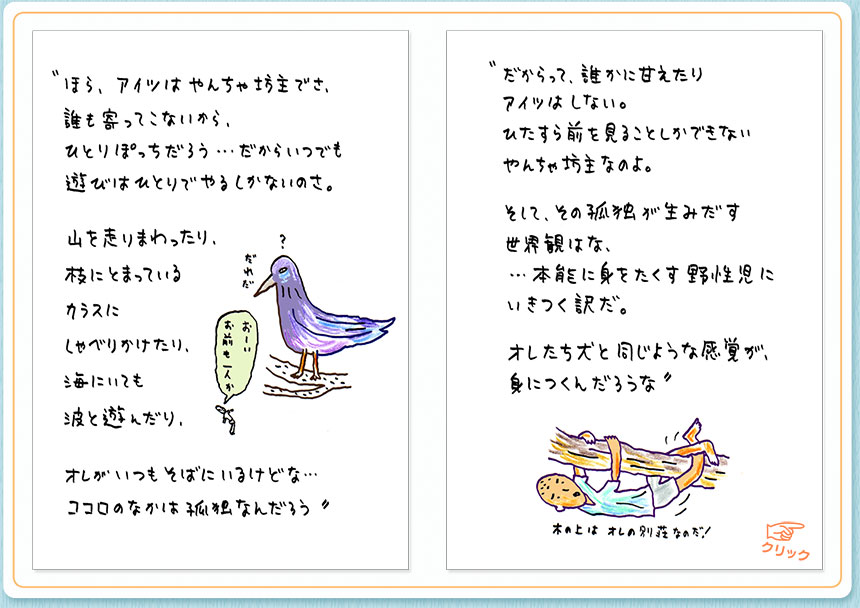 〝ほら、アイツは やんちゃ坊主でさ、
誰も寄ってこないから、
ひとりぽっちだろう…だからいつでも
遊びはひとりでやるしかないのさ。
山を走りまわったり、
枝にとまっている
カラスに
しゃべりかけたり、
海にいても
波と遊んだり、
?
だれだ
おーい
お前も一人か
オレがいつもそばにいるけどな…
ココロのなかは孤独なんだろう〞
〝だからって、誰かに甘えたり
アイツは しない。
ひたすら前を見ることしかできない
やんちゃ坊主なのよ。
そして、その孤独が生みだす
世界観はな、
…本能に身をたくす野性児に
いきつく訳だ。
オレたち犬と同じような感覚が、
身につくんだろうな〞
木の上は オレの別荘なのだ!
クリック